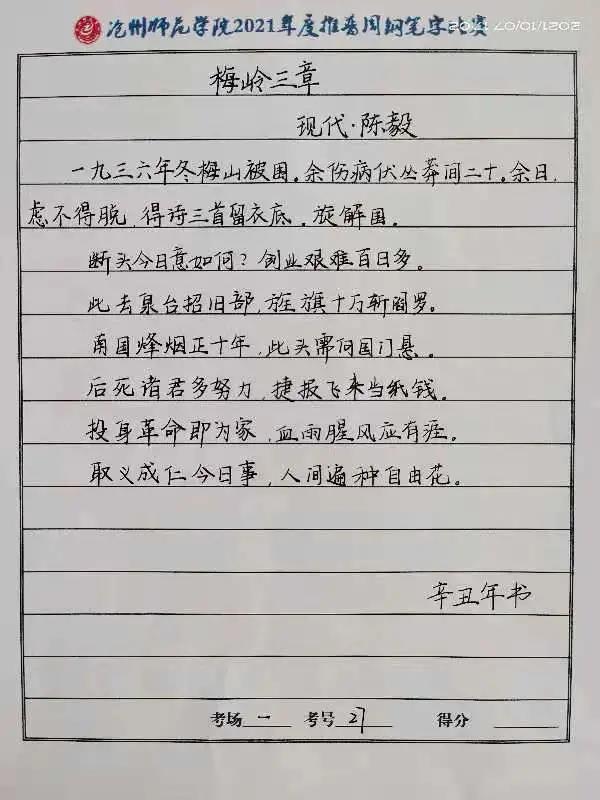 沧州师范学院2021年度推普周钢笔字比赛
梅岭三章
现代·陈毅
一九三六年冬梅山被围。余伤病伏丛莽间二十。余日,
虑不得脱,得诗三首留衣底。旋解围。
断头今日意如何？创业艰难百日多。
此去泉台招旧部,旌旗十万斩阎罗。
南国烽烟正十年,此头需向国门悬。
后死诸君多努力,捷报飞来当纸钱。
投身革命即为家,血雨腥风应有涯。
取义成仁今日事,人间遍种自由花。
辛丑年书
考场 一 考号 27 得分